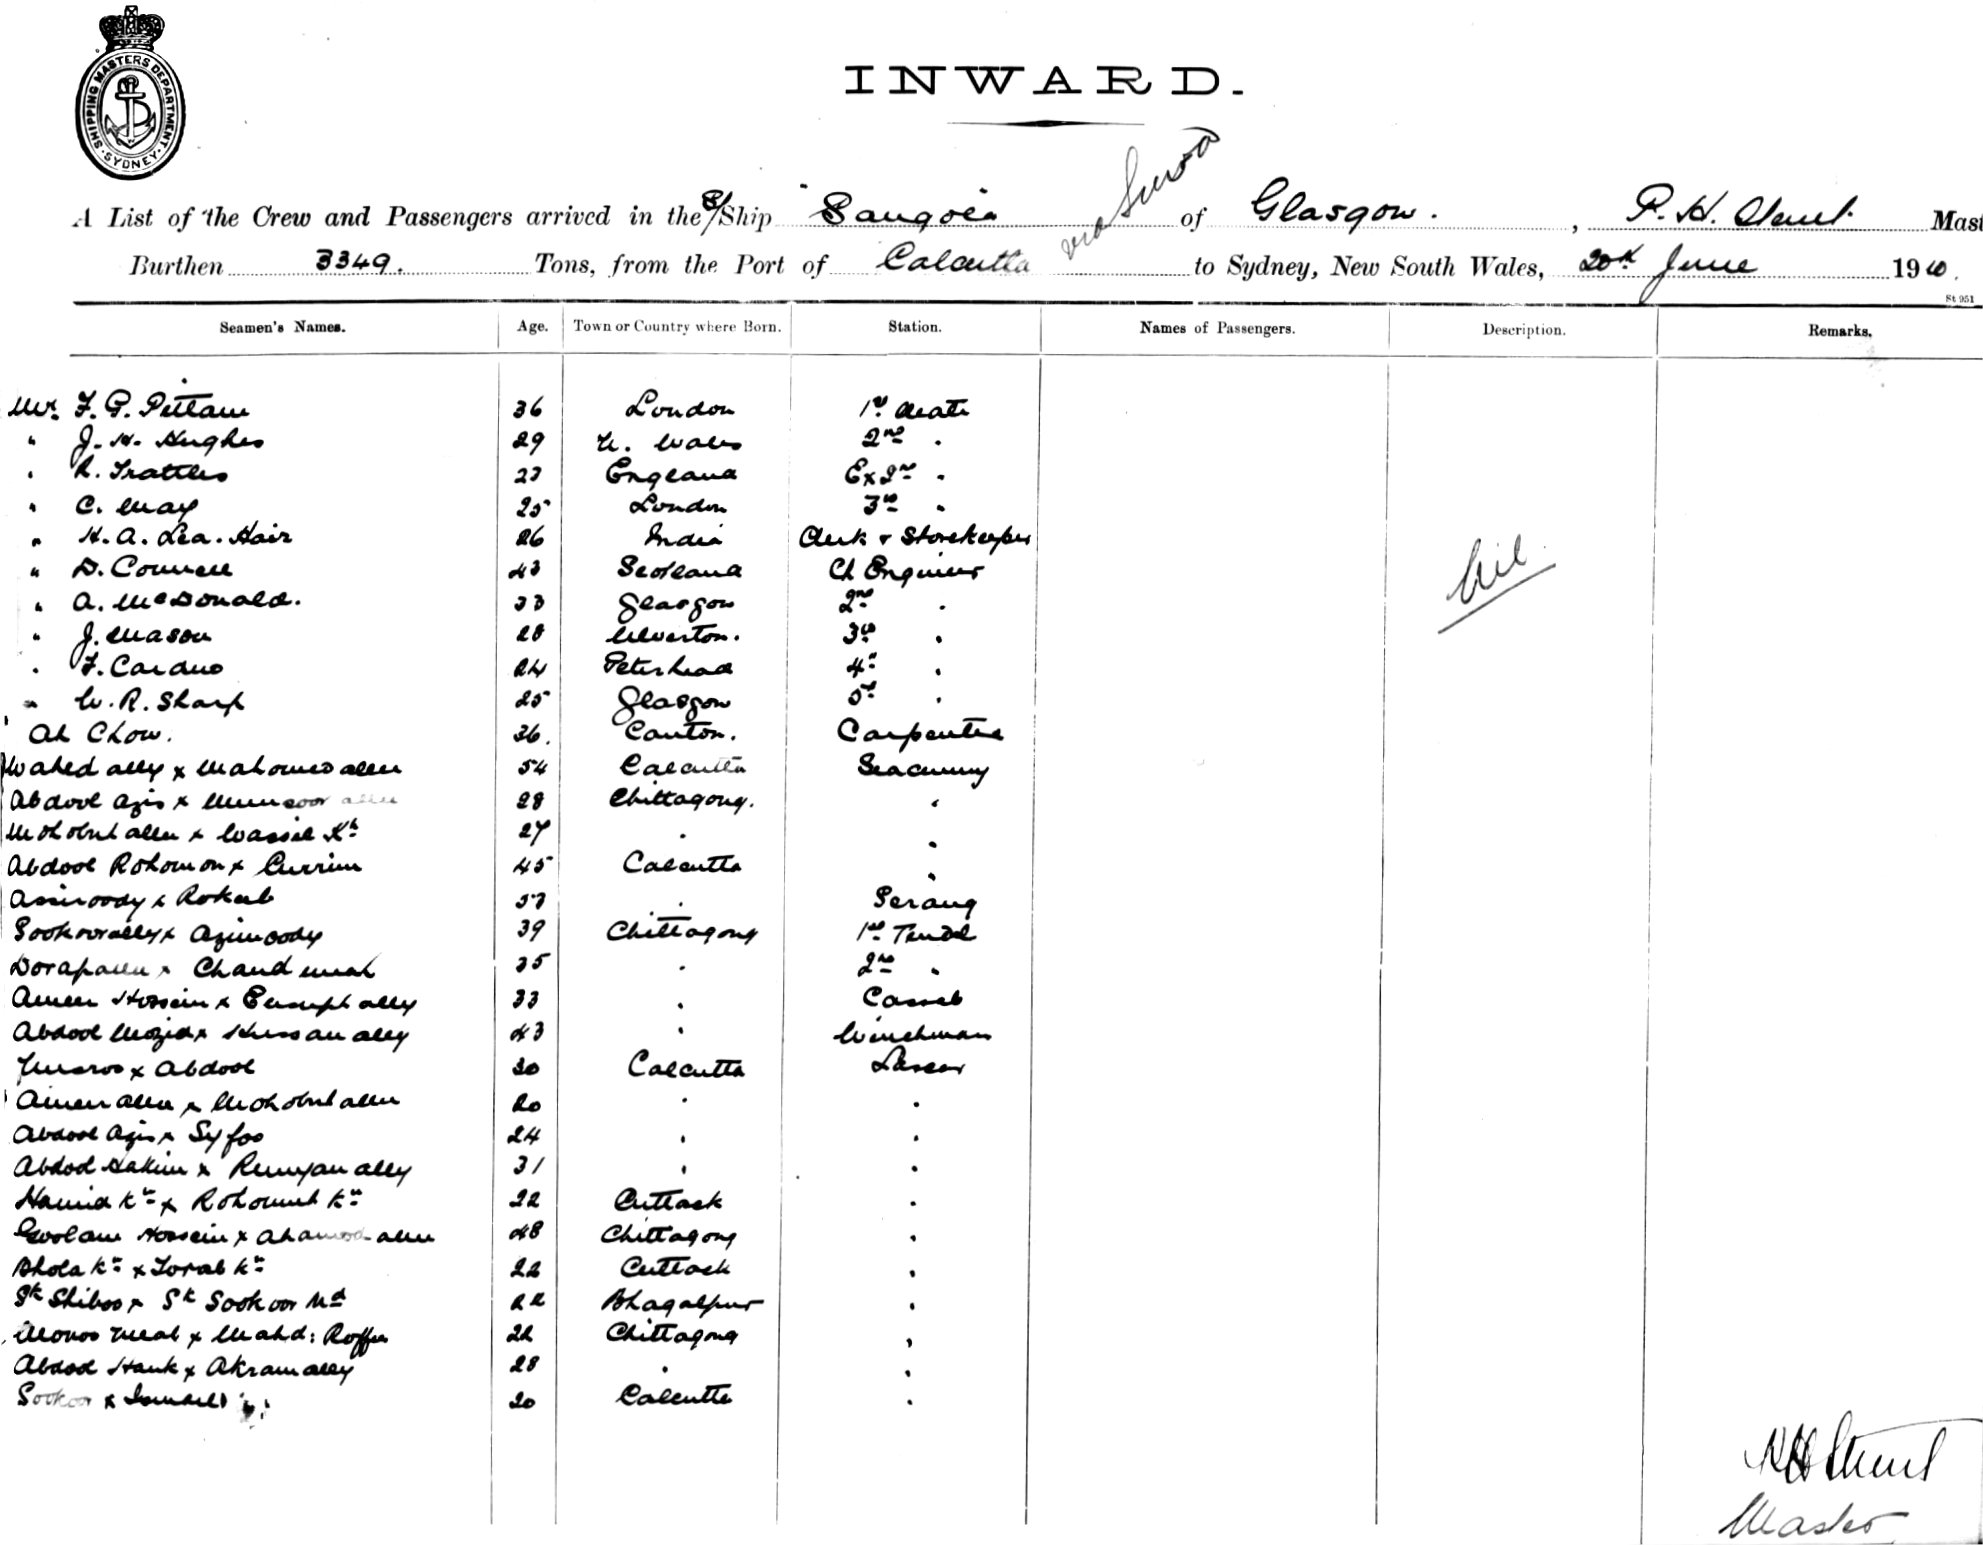 SHIPPING MASTERS DEPARTMENT SYDNEY
INWARD.
A List of the Crew and Passengers arrived in the S/Ship Sangola via Suva of Glasgow. , Mast
Burthen 3349. Tons, from the Port of Calcutta to Sydney, New South Wales, 20th June 1910.
St 951
Seamen's Names. Age. Town or Country where Born. Station. Names of Passengers. Description. Remarks.
Mr. F. G. Pittam 36 London 1st Mate
" J. H. Hughes 29 N. Wales 2nd "
" R. Trattles 23 England Ex 2nd "
" C. May 25 London 3rd "
" H. A. Lea-Hair 26 India Clerk & Storekeeper
" D. Connell 43 Scotland Ch Engineer
" A. McDonald. 33 Glasgow 2nd "
" J. Mason 28 Ulverton. 3rd "
" F. Cardno 24 Peterhead 4th "
" W. R. Sharp 25 Glasgow 5th "
Ah Chow. 36. Canton. Carpenter
Nil
Wahed ally x Mahomed allee 54 Calcutta Seacunny
Abdool Azis x Munsoor allee 28 Chittagong. "
Mohobut allee x Wassil Kn 27 " "
Abdool Rohomon x Currim 45 Calcutta "
Assiroody x Rokub 57 " Serang
Sookoorally x Azimoody 39 Chittagong 1st Tindal
Dorapallee x Chand meah 35 " 2nd "
Ameer Hossein x Eusuph ally 33 " Cassab
Abdool Mozid x Hussan ally 43 " Winchman
x Abdool 30 Calcutta Lascar
Ameer allee x Mohobut allee 20 " "
Abdool Azis x Syfoo 24 " "
Abdool Hakim x Rumzan ally 31 " "
Hamid Kn x Rohomut Kn 22 Cuttack "
Goolam Hossein x Ahamod allee 48 Chittagong "
Bhola Kn x Torab Kn 22 Cuttack "
Sk Shiboo x Sk Sookoor Md 22 Bhagalpur "
Monoo Meah x Mahd: Roffee 22 Chittagong "
Abdool Hauk x Akram ally 28 " "
Sookoor x Ismail 20 Calcutta "
Master